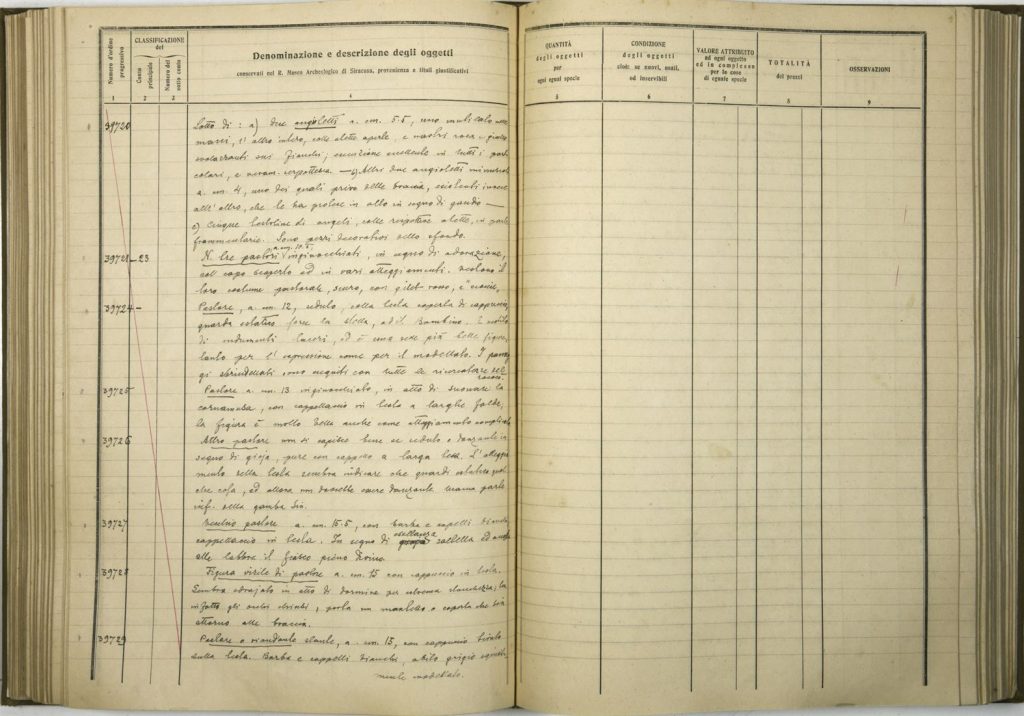 Numero d'ordine progressivo
CLASSIFICAZIONE del
Conto principale
Numero del sotto conto
Denominazione e descrizione degli oggetti
conservati nel R. Museo Archeologico di Siracusa, provenienza e titoli giustificativi
1 2 3 4
39720 Lotto di: a) due angioletti a. cm. 5.5, uno mutilato nelle
mani, l'altro intero, colle alette aperte, e nastri rosa e giallo
svolazzanti sui fianchi; esecuzione eccellente in tutti i parti
colari, e b) Altri due angioletti minuscoli
a. cm. 4, uno dei quali privo delle braccia,
all'altro, che le ha protese in alto in segno di gaudio —
c) Cinque testoline di angeli, colle rispettive alette, in parte
frammentarie. Sono pezzi decorativi dello sfondo.
a. cm. 10.5
39721-23 N. tre pastori inginocchiati, in segno di adorazione,
col capo scoperto ed in vari atteggiamenti. il
loro costume pastorale, scuro, con gilet rosso, e
39724 - Pastore, a. cm. 12, seduto, colla testa coperta di cappuccio,
guarda estatico forse la stella, od il Bambino. È vestito
di indumenti laceri, ed è una delle più belle figure,
tanto per l'espressione come per il modellato. I
sono eseguiti con tutte le del
39725 Pastore a. cm. 13 inginocchiato, in atto di suonare la
cornamusa, con cappellaccio in testa a larghe falde;
la figura è molto bella anche come atteggiamento complicato
39726 Altro pastore non si capisce bene se seduto o danzante in
segno di gioja, pure con cappello a larga tesa. L'atteggia
mento della testa sembra indicare che guardi estatico qual
che cosa, ed allora non dovrebbe essere danzante. Manca parte
inf. della gamba sin.
39727 Vecchio pastore a. cm. 15.5, con barba e capelli bianchi,
cappellaccio in testa. In segno di
alle labbra il fiasco pieno di vino.
39728 Figura virile di pastore a. cm. 15 con cappuccio in testa.
Sembra sdrajato in atto di dormire per estrema stanchezza; ha
infatti gli occhi chiusi, porta un mantello o coperta che
attorno alle braccia.
39729 Pastore o viandante stante, a. cm. 15, con cappuccio tirato
sulla testa. Barba e cappelli bianchi, abito grigio
mente modellato.
QUANTITÀ
degli oggetti
per
ogni egual specie
5
CONDIZIONE
degli oggetti
cioè: se nuovi, usati,
od inservibili
6
VALORE ATTRIBUITO
ad ogni oggetto
ed in complesso
per le cose
di eguale specie
7
TOTALITÀ
dei prezzi
8
OSSERVAZIONI
9